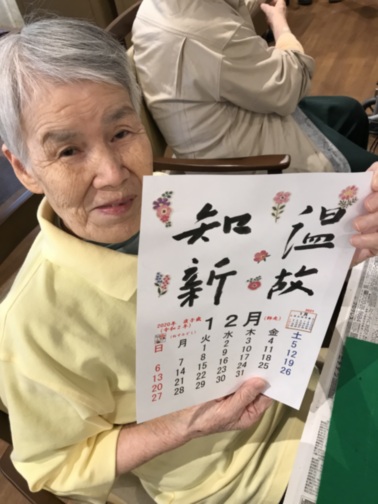 温故
知新
2020年 庚子歳
(令和2年)
12月
(師走)
日 月 火 水 木 金 土
1 2 3 4 5
6 7 8 9 10 11 12
13 14 15 16 17 18 19
20 21 22 23 24 25 26
27 28 29 30 31